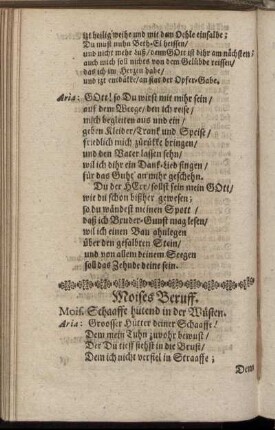 itzt heilig weihe und mit dem Oehle einsalbe;
Du must nuhn Beth-El heissen/
und nicht mehr Lus/ dem GOtt ist dihr am nächsten/
auch mich soll nichts von dem Gelübde reissen/
das ich im Hertzen habe/
und itzt entdäkke/ an stat der Opfer-Gabe.
Aria: GOtt! so Du wirst mit mihr sein/
auf dem Weege/ den ich reise/
mich begleiten aus und ein/
geben Kleider/ Trank und Speise/
friedlich mich zurükke bringen/
und den Vater lassen sehn/
wil ich dihr ein Dank-Lied singen/
für das Guht/ an mihr geschehn.
Du der HErr/ sollst sein mein GOtt/
wie du schon bißher gewesen;
so du wändest meinen Spott/
daß ich Bruder-Gunst mag lesen/
wil ich einen Bau ahnlegen
über den gesalbten Stein/
und von allem deinem Seegen
soll das Zehnde deine sein.
Moises Beruff.
Mois. Schaaffe hütend in der Wüsten.
Aria: Grooser Hütter deiner Schaaffe/
Dem mein Tuhn zuvohr bewust/
Der Du tieff siehst in die Brust/
Dem ich nicht verfiel in Straaffe;
Dem